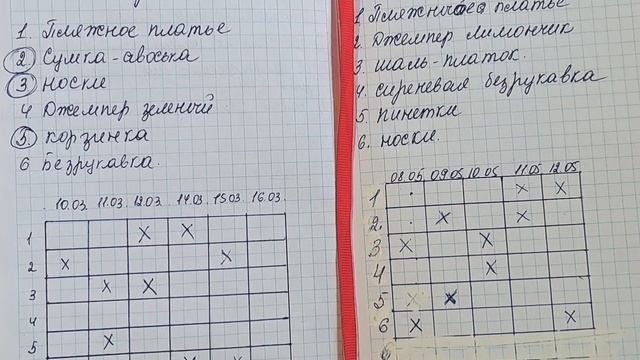 1. Пляжное платье
2 Сумка-авоська
3 носки
4 Джемпер зеленый
5. корзинка
6 Безрукавка.
10.03. 11.03. 12.03 14.03. 15.03. 16.03.
1 X X
2 X X
3 X X
4
5 X
1 Пляжное платье
2 Джемпер лимончик
3. шаль-платок.
4. сиреневая безрукавка
5. пинетки
6. носки.
08.05 09.05 10.05 11.05 12.05
1 X X
2. X X
3 X X
4 X
5 X X
6 X X